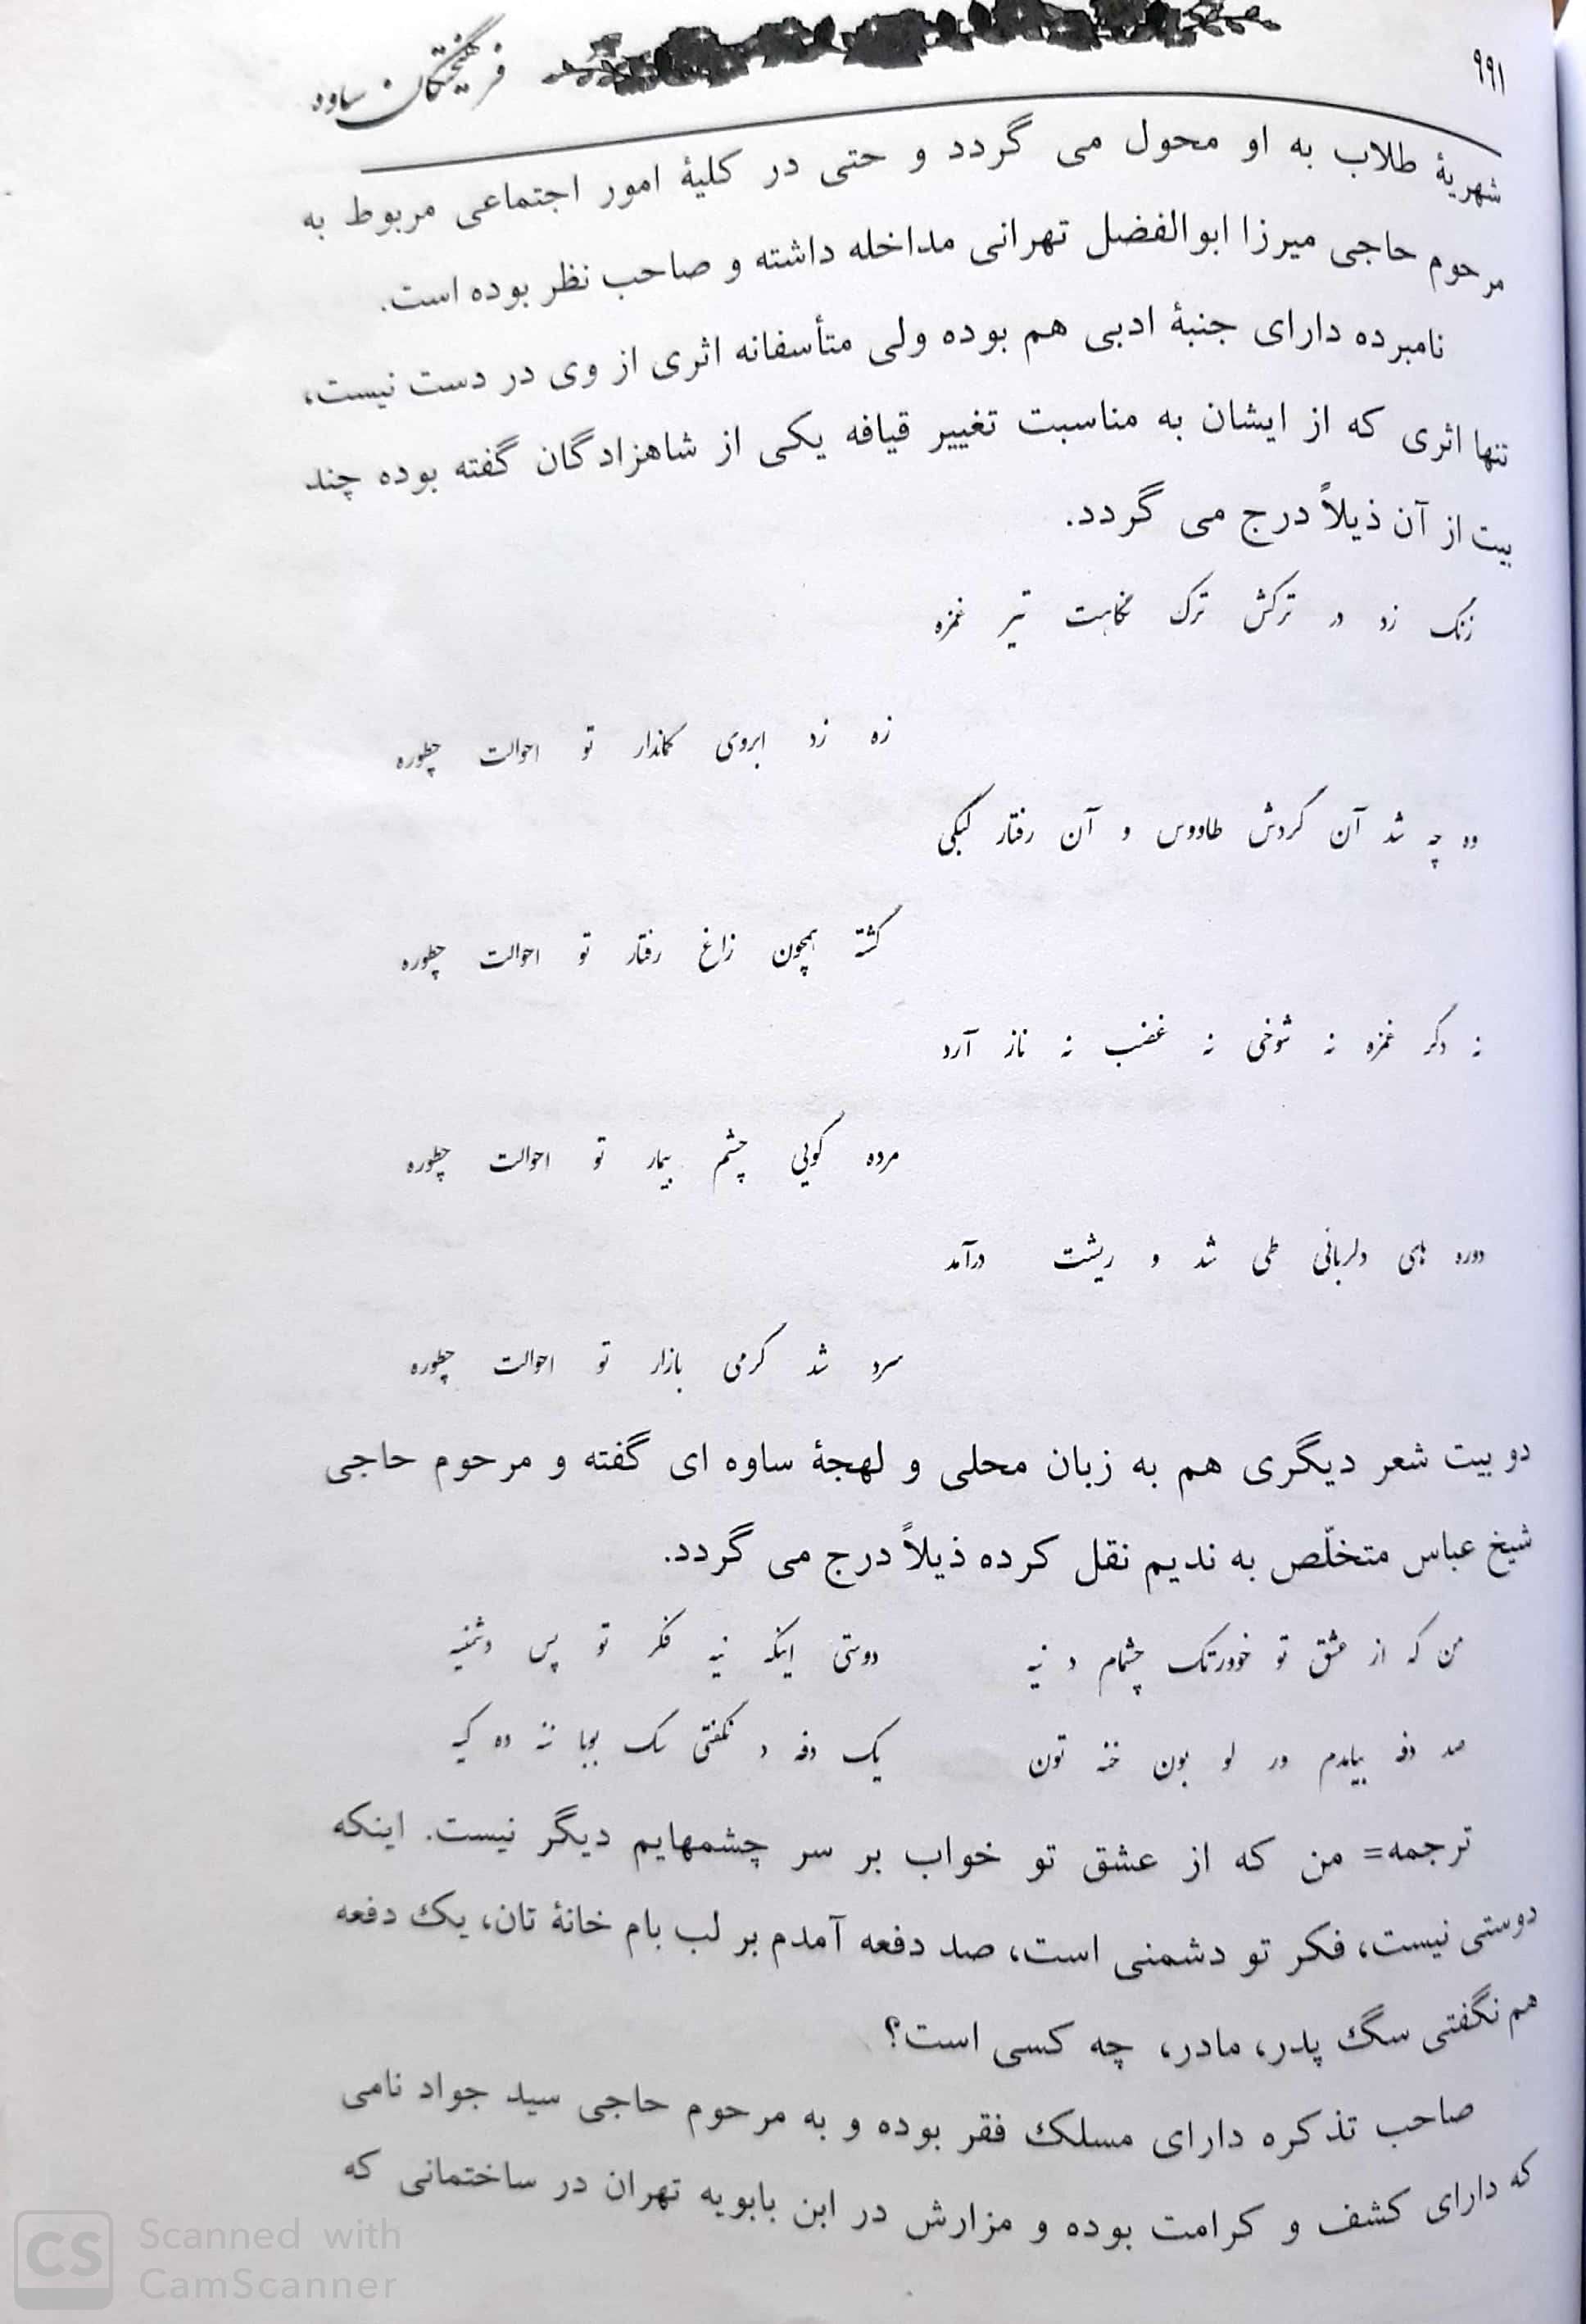 ۹۹۱
فرهیختگان ساوه
شهریهٔ طلاب به او محول می گردد و حتی در کلیهٔ امور اجتماعی مربوط به
مرحوم حاجی میرزا ابوالفضل تهرانی مداخله داشته و صاحب نظر بوده است.
نامبرده دارای جنبهٔ ادبی هم بوده ولی متأسفانه اثری از وی در دست نیست،
تنها اثری که از ایشان به مناسبت تغییر قیافه یکی از شاهزادگان گفته بوده چند
بیت از آن ذیلاً درج می گردد.
زنگ زد در ترکش ترک نگاهت تیر غمزه
زه زد ابروی کماندار تو احوالت چطوره
وه چه شد آن گردش طاووس و آن رفتار کبکی
گشته همچون زاغ رفتار تو احوالت چطوره
نه دگر غمزه نه شوخی نه غضب نه ناز آرد
مرده گویی چشم بیمار تو احوالت چطوره
دوره های دلربائی طی شد و ریشت درآمد
سرد شد گرمی بازار تو احوالت چطوره
دو بیت شعر دیگری هم به زبان محلی و لهجهٔ ساوه ای گفته و مرحوم حاجی
شیخ عباس متخلّص به ندیم نقل کرده ذیلاً درج می گردد.
من که از عشق تو خوورتک چشمام د نیه دوستی اینکه نیه فکر تو پس دشمنیه
صد دفه بیامدم ور لو بون خنه تون یک دفه د نگفتی سگ بوبا ننه ده کیه
ترجمه= من که از عشق تو خواب بر سر چشمهایم دیگر نیست. اینکه
دوستی نیست، فکر تو دشمنی است، صد دفعه آمدم بر لب بام خانهٔ تان، یک دفعه
هم نگفتی سگ پدر، مادر، چه کسی است؟
صاحب تذکره دارای مسلک فقر بوده و به مرحوم حاجی سید جواد نامی
که دارای کشف و کرامت بوده و مزارش در ابن بابویه تهران در ساختمانی که
CS Scanned with
CamScanner